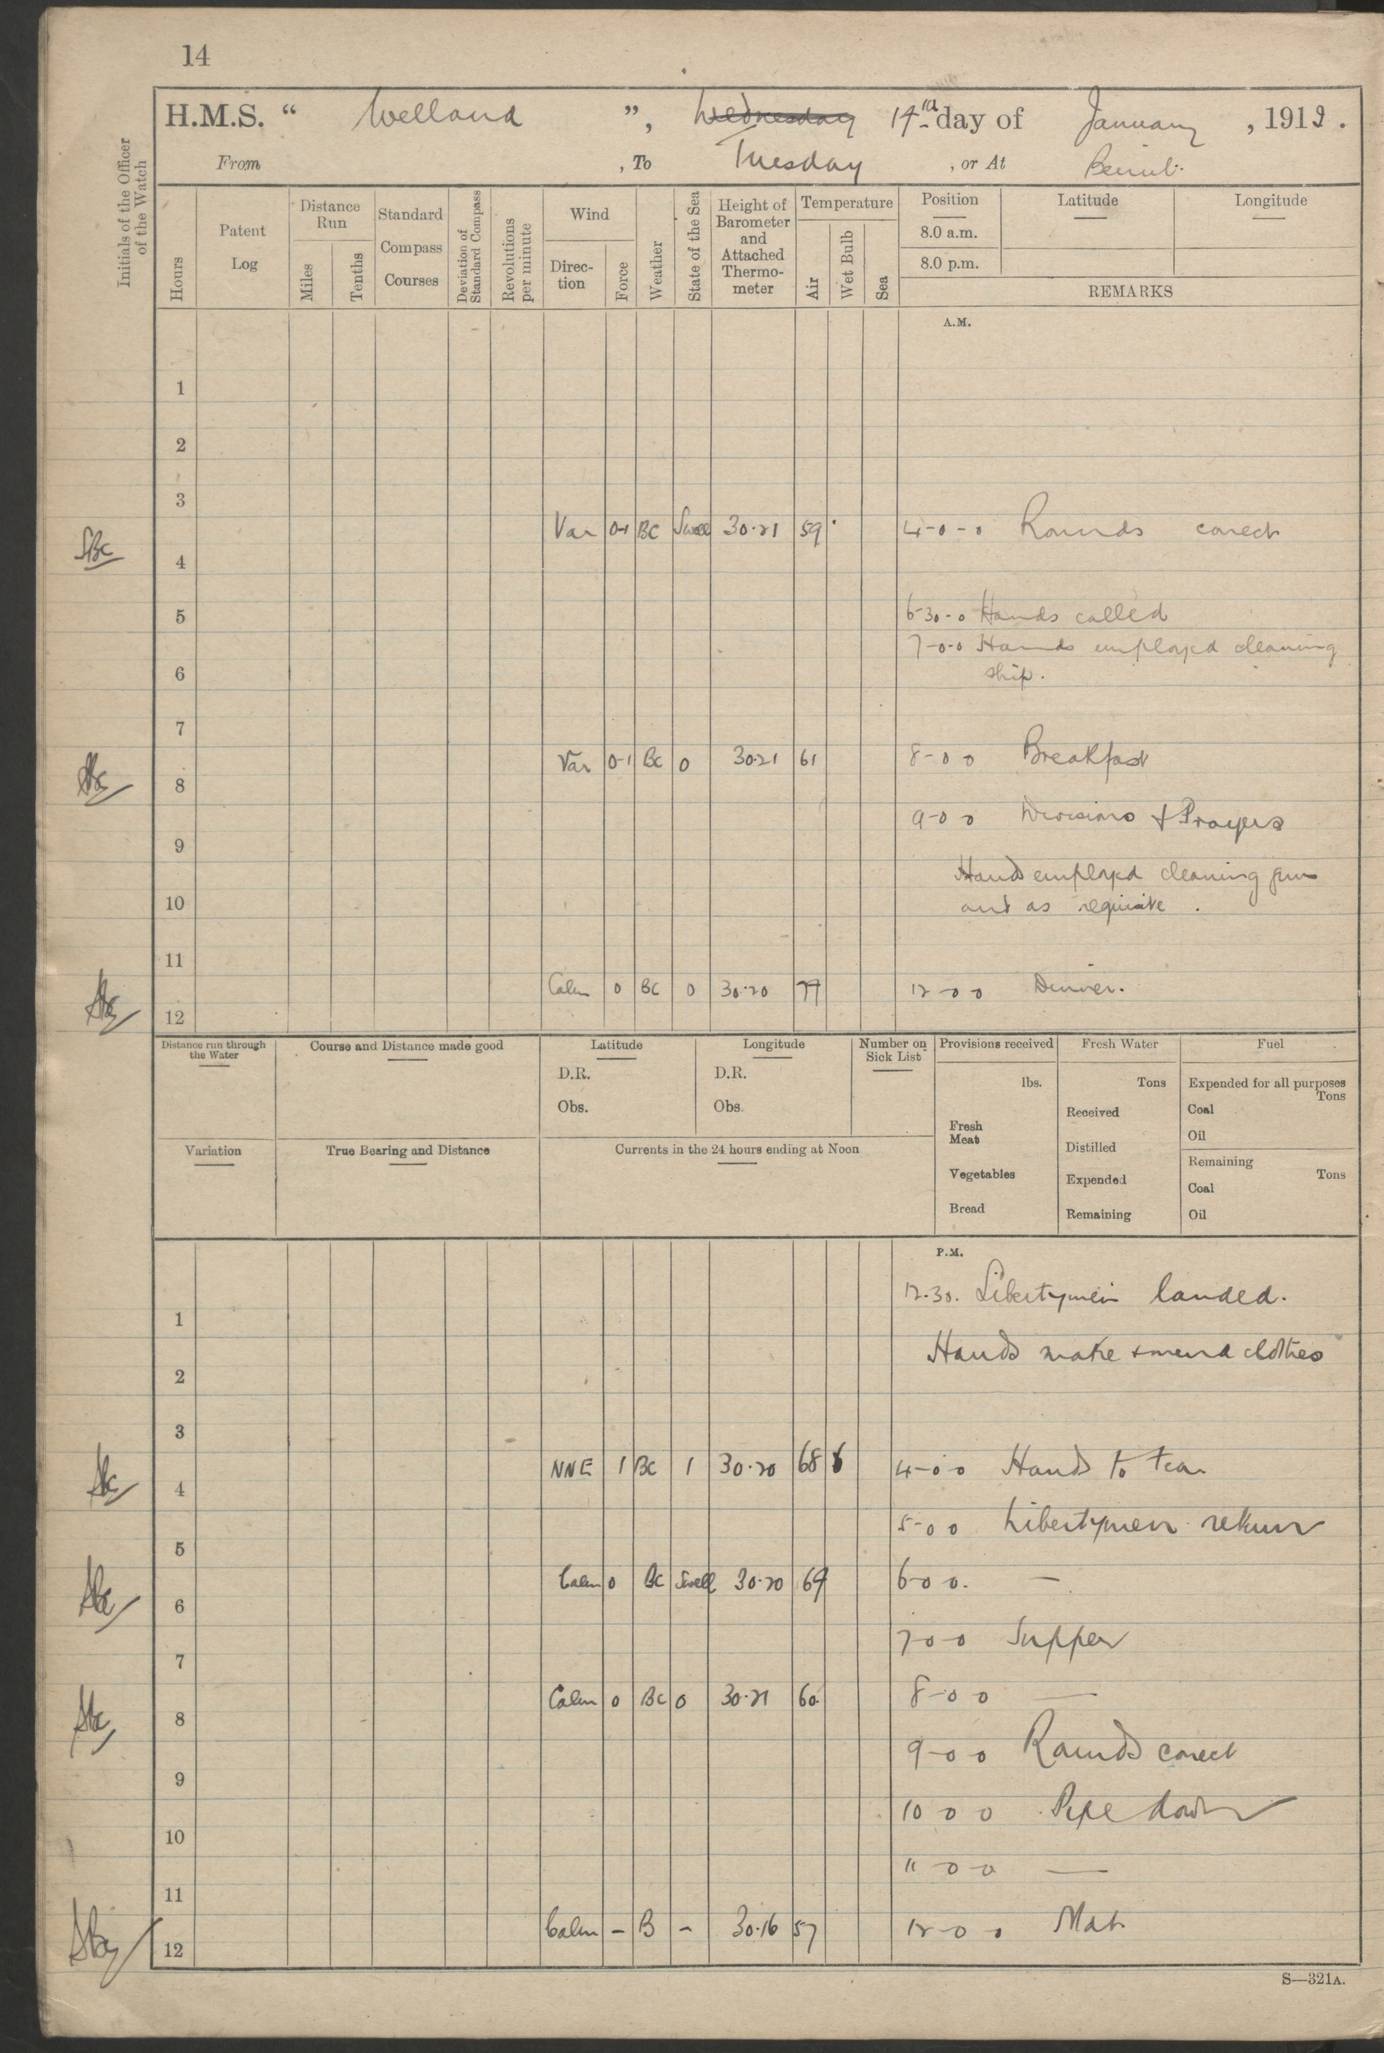 14
H.M.S. “ Welland ”, Wednesday 14th day of January , 1919 .
From , To Tuesday , or At Beirut.
Initials of the Officer of the Watch
Hours
Patent Log
Distance Run
Miles
Tenths
Standard Compass Courses
Deviation of Standard Compass
Revolutions per minute
Wind
Direc-tion
Force
Weather
State of the Sea
Height of Barometer and Attached Thermo-meter
Temperature
Air
Wet Bulb
Sea
Position
8.0 a.m.
8.0 p.m.
Latitude
Longitude
REMARKS
A.M.
1
2
3
Var 0-1 BC Swell 30.21 59 4-0-0 Rounds corect
4
5 6-30-0 Hands called
7-0-0 Hands employed cleaning
6 ship.
7
Var 0-1 BC 0 30.21 61 8-0 0 Breakfast
8
9-0 0 Divisions & Prayers
9
Hands employed cleaning guns
10 and as requisite .
11
Calm 0 BC 0 30.20 77 12-0 0 Dinner.
12
Distance run through the Water
Course and Distance made good
Latitude
D.R.
Obs.
Longitude
D.R.
Obs.
Number on Sick List
Provisions received
lbs.
Fresh Meat
Vegetables
Bread
Fresh Water
Tons
Received
Distilled
Expended
Remaining
Fuel
Expended for all purposes
Tons
Coal
Oil
Remaining
Tons
Coal
Oil
Variation
True Bearing and Distance
Currents in the 24 hours ending at Noon
P.M.
12.30. Libertymen landed.
1
Hands make & mend clothes
2
3
NNE 1 BC 1 30.20 68 4-0 0 Hands to tea
4
5-0 0 Libertymen return
5
Calm 0 BC Swell 30.20 64 6-0 0. —
6
7 0 0 Supper
7
Calm 0 BC 0 30.21 60 8-0 0 —
8
9-0 0 Rounds corect
9
10 0 0 Pipe down
10
11 0 0 —
11
Calm – B – 30.16 57 12-0 0
12
S—321A.